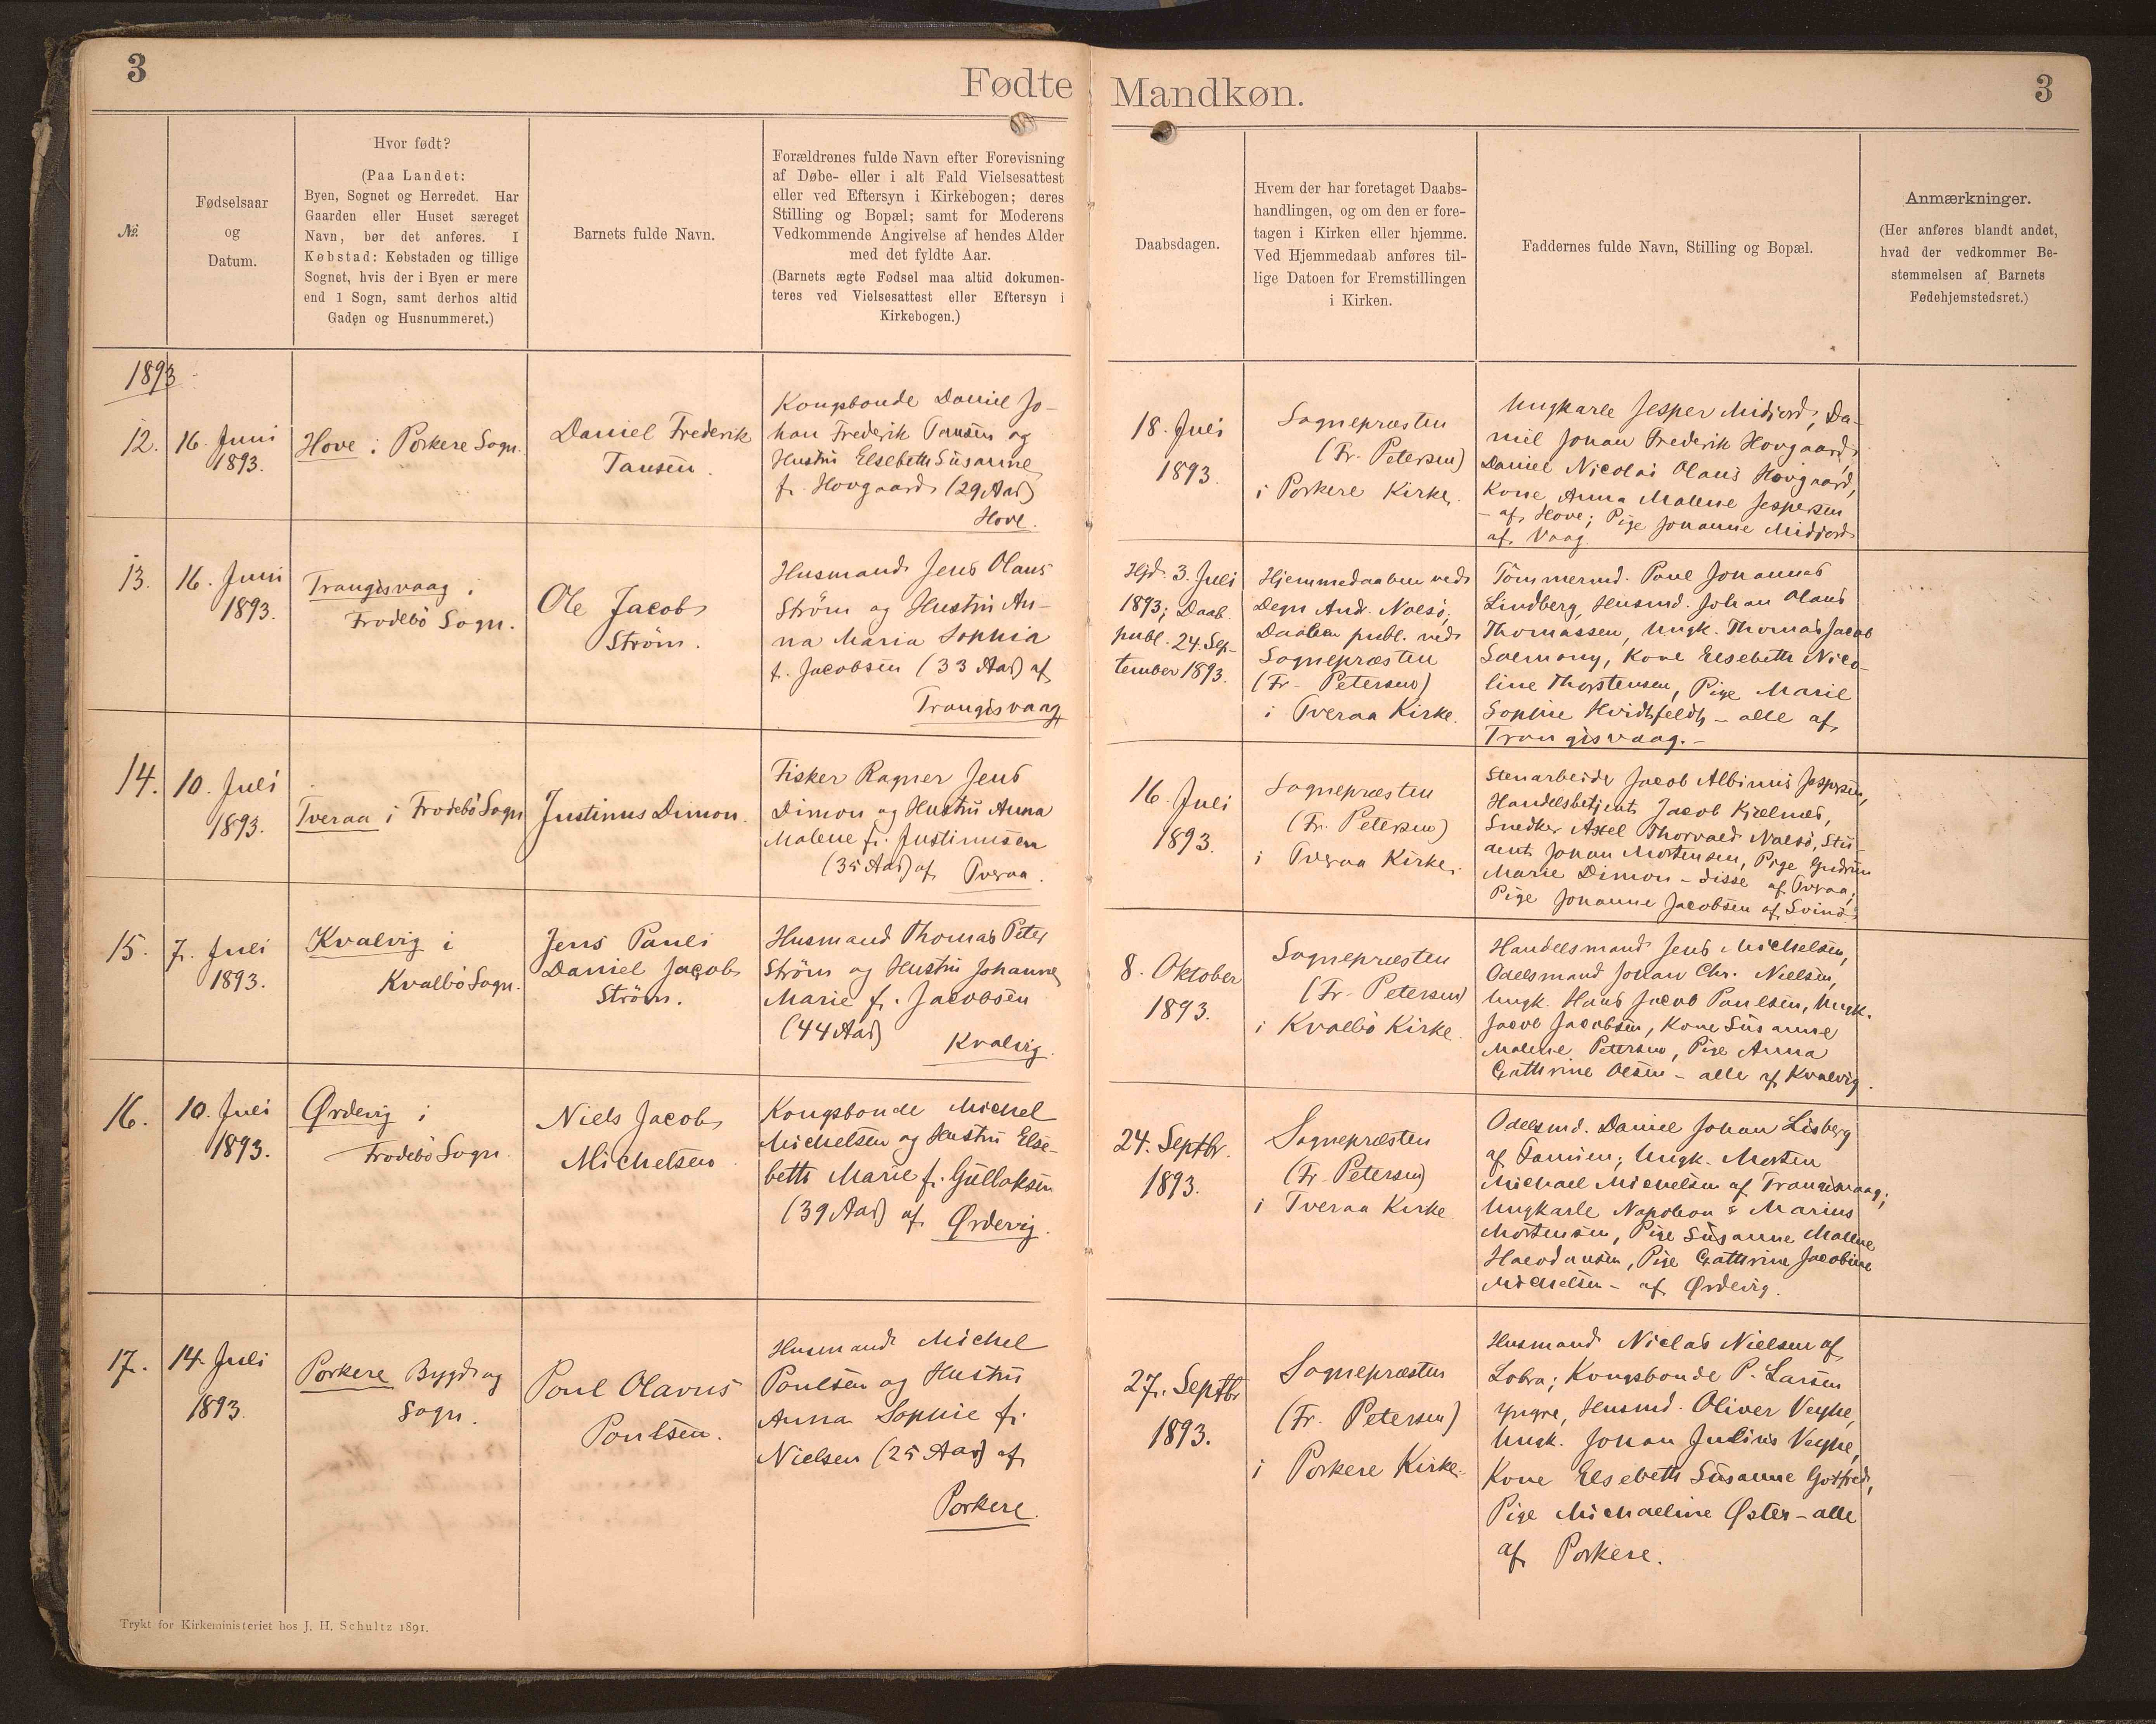 3
Fødte
Mandkøn.
3
№.
Fødselsaar
og
Datum.
Hvor født?
(Paa Landet:
Byen, Sognet og Herredet. Har
Gaarden eller Huset særeget
Navn, bør det anføres. I
Købstad: Købstaden og tillige
Sognet, hvis der i Byen er mere
end 1 Sogn, samt derhos altid
Gaden og Husnummeret.)
Barnets fulde Navn.
Forældrenes fulde Navn efter Forevisning
af Døbe- eller i alt Fald Vielsesattest
eller ved Eftersyn i Kirkebogen; deres
Stilling og Bopæl; samt for Moderens
Vedkommende Angivelse af hendes Alder
med det fyldte Aar.
(Barnets ægte Fødsel maa altid dokumen-
teres ved Vielsesattest eller Eftersyn i
Kirkebogen.)
Daabsdagen.
Hvem der har foretaget Daabs-
handlingen, og om den er fore-
tagen i Kirken eller hjemme.
Ved Hjemmedaab anføres til-
lige Datoen for Fremstillingen
i Kirken.
Faddernes fulde Navn, Stilling og Bopæl.
Anmærkninger.
(Her anføres blandt andet,
hvad der vedkommer Be-
stemmelsen af Barnets
Fødehjemstedsret.)
1893
12.
16. Juni
1893.
Hove i Porkere Sogn.
Daniel Frederik
Tausen.
Kongsbonde Daniel Jo-
han Frederik Tausen og
Hustru Elsebeth Susanne
f. Hovgaard (29 Aar)
Hove.
18. Juli
1893.
Sognepræsten
(Fr. Petersen)
i Porkere Kirke.
Ungkarle Jesper Midjord, Da-
niel Johan Frederik Hovgaard,
Daniel Nicolai Olaus Hovgaard,
Kone Anna Malene Jespersen
- af Hove; Pige Johanne Midjord
af Vaag.
13.
16. Juni
1893.
Trangisvaag i
Frodebö Sogn.
Ole Jacob
Strøm.
Husmand Jens Olaus
Strøm og Hustru An-
na Maria Sophia
f. Jacobsen (33 Aar) af
Trangisvaag
Hjd. 3. Juli
1893; Daab.
publ. 24. Sep-
tember 1893.
Hjemmedaaben ved
Degn And. Nolsö,
Daaben publ. ved
Sognepræsten
(Fr. Petersen)
i Tveraa Kirke.
Tömmermd. Poul Johannes
Lindberg, Husmd. Johan Olaus
Thomassen, Ungk. Thomas Jacob
Solmony, Kone Elsebeth Nico-
line Thorstensen, Pige Marie
Sophie Hvidtfeldt, - alle af
Trangisvaag. -
14.
10. Juli
1893.
Tveraa i Frodebö Sogn
Justinus Dimon.
Fisker Ragner Jens
Dimon og Hustru Anna
Malene f. Justinussen
(35 Aar) af Tveraa.
16. Juli
1893.
Sognepræsten
(Fr. Petersen)
i Tveraa Kirke.
Stenarbeider Jacob Albinus Jespersen,
Handelsbetjent Jacob Kjølnæs,
Snedker Axel Thorvald Nolsö, Stu-
dent Johan Mortensen, Pige Gudrun
Marie Dimon - disse af Tveraa;
Pige Johanne Jacobsen af Svinö.
15.
7. Juli
1893.
Kvalvig i
Kvalbö Sogn.
Jens Pauli
Daniel Jacob
Strøm.
Husmand Thomas Peter
Strøm og Hustru Johanne
Marie f. Jacobsen
(44 Aar)
Kvalvig.
8. Oktober
1893.
Sognepræsten
(Fr. Petersen)
i Kvalbö Kirke.
Handelsmand Jens Michelsen,
Odelsmand Johan Chr. Nielsen,
Ungk. Hans Jacob Poulsen, Ungk.
Jacob Jacobsen, Kone Susanne
Malene Petersen, Pige Anna
Cathrine Olsen - alle af Kvalvig.
16.
10. Juli
1893.
Ørdevig i
Frodebö Sogn.
Niels Jacob
Michelsen.
Kongsbonde Michel
Michelsen og Hustru Else-
beth Marie f. Gullaksen
(39 Aar) af Ørdevig.
24. Septbr.
1893.
Sognepræsten
(Fr. Petersen)
i Tveraa Kirke.
Odelsmd. Daniel Johan Lisberg
af Famien; Ungk. Morten
Michael Michelsen af Trangisvaag;
Ungkarle Napoleon & Marius
Mortensen, Pige Susanne Malene
Hacodansen, Pige Cathrine Jacobine
Michelsen - af Ørdevig.
17.
14. Juli
1893.
Porkere Bygd og
Sogn.
Poul Olavus
Poulsen.
Husmand Michel
Poulsen og Hustru
Anna Sophie f.
Nielsen (25 Aar) af
Porkere.
27. Septbr
1893.
Sognepræsten
(Fr. Petersen)
i Porkere Kirke.
Husmand Niclas Nielsen af
Lobra; Kongsbonde P. Larsen
yngre, Husmd. Oliver Veyhe,
Ungk. Johan Julius Veyhe,
Kone Elsebeth Susanne Gotfred,
Pige Michaeline Øster - alle
af Porkere.
Trykt for Kirkeministeriet hos J. H. Schultz 1891.